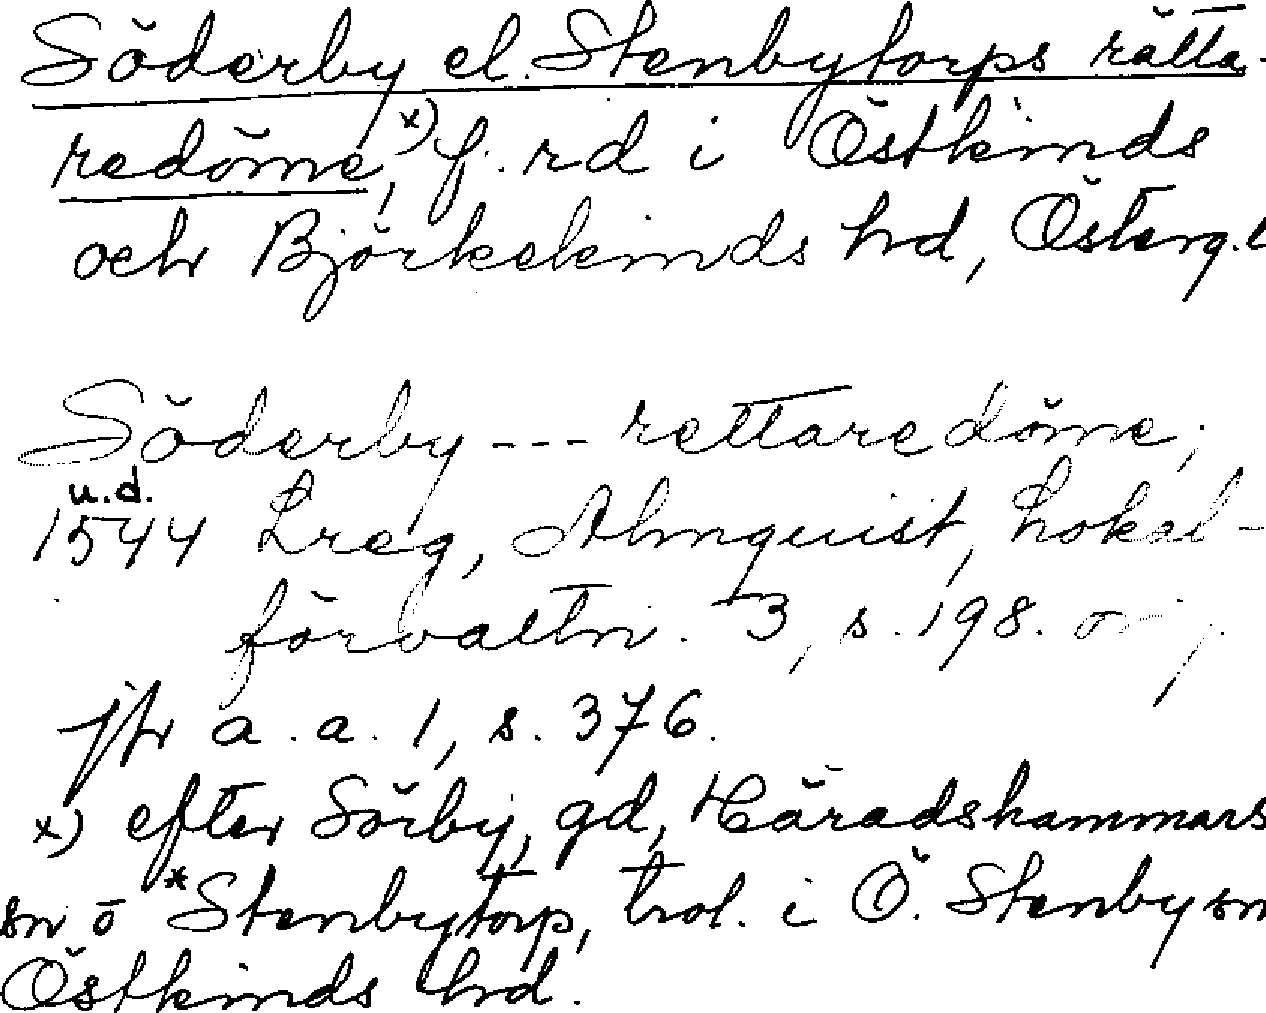 Söderby el. Stenbytorps rätta-
redöme,ˣ⁾ f. rd i Östkinds
och Björkekinds hrd, Österg.l
Söderby --- rettaredöme,
u.d.
1544 Lreg, Almquist, Lokal-
förvaltn. 3, s. 198.
jfr a.a. 1, s. 376.
x) efter Sörby, gd, Häradshammars
sn o *Stenbytorp, trol. i Ö. Stenby sn
Östkinds hrd.